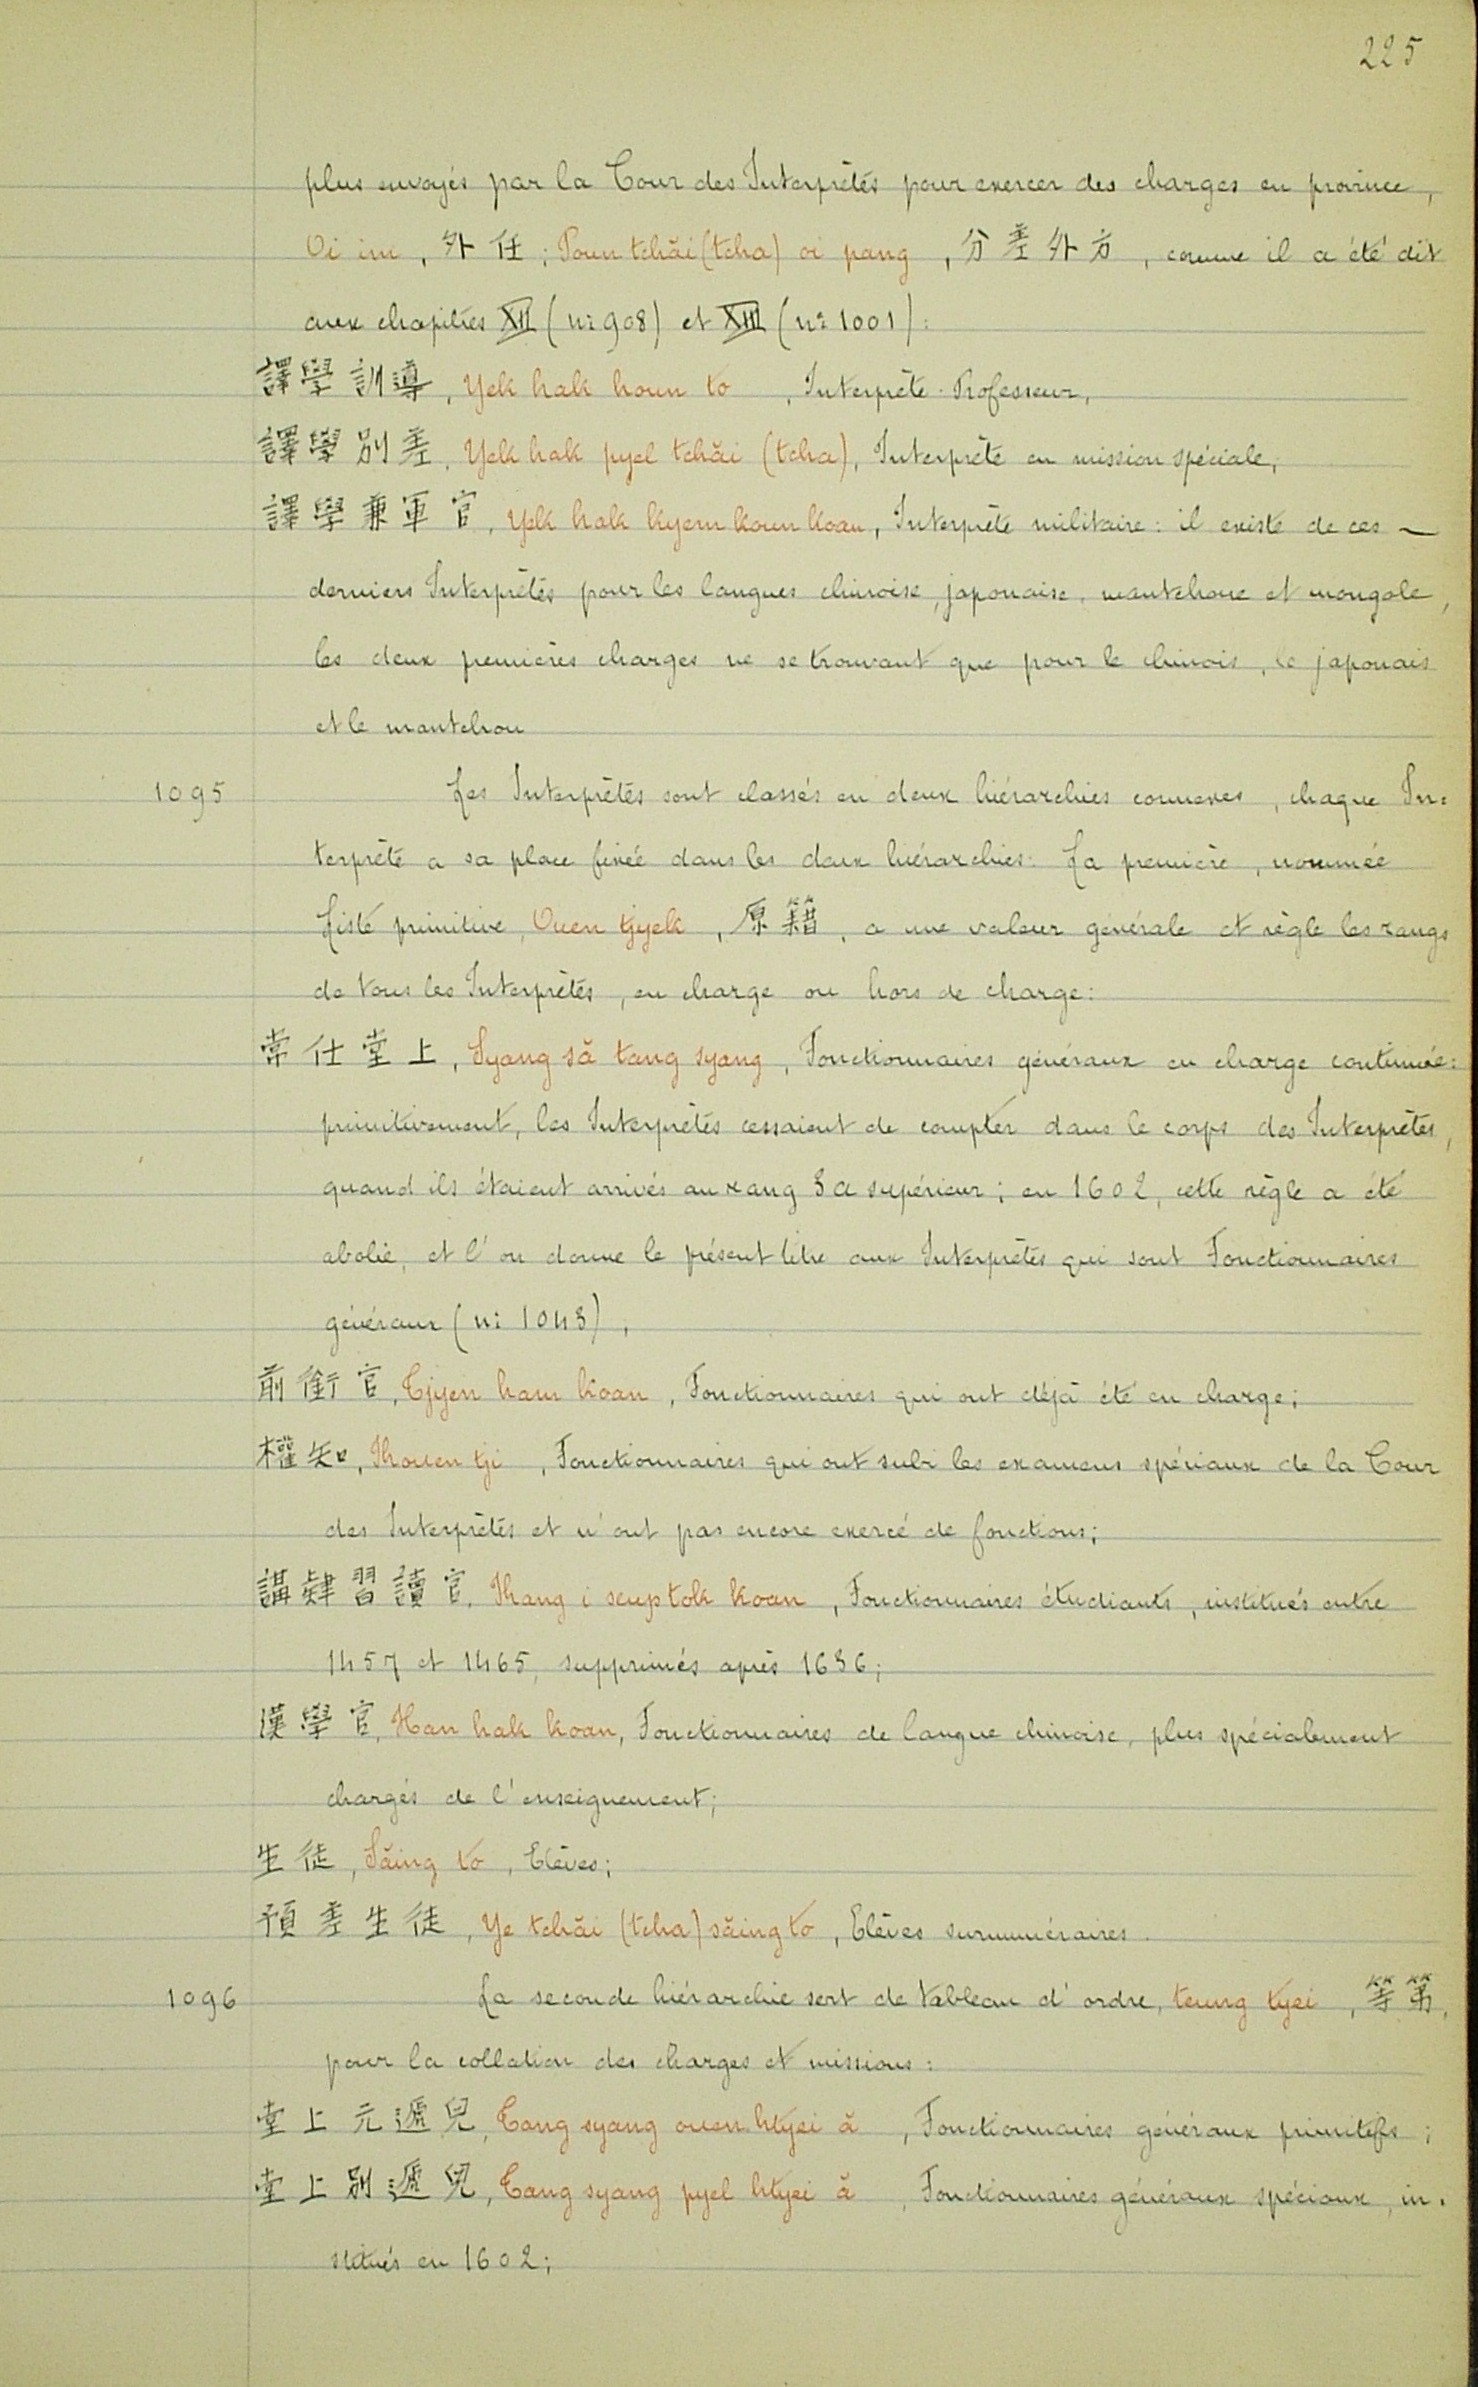 225
plus envoyés par la Cour des Interprètes pour exercer des charges en province,
Oi im, 外任; Poun tchăi (tcha) oi pang, 分差外方, comme il a été dit
aux chapitres XII (nº 908) et XIII (nº 1001):
譯學訓導, Yek hak houn to, Interprète-Professeur,
譯學別差, Yek hak pyel tchăi (tcha), Interprète en mission spéciale,
譯學兼軍官, Yek hak kyem koun koan, Interprète militaire: il existe de ces
derniers Interprètes pour les langues chinoise, japonaise, mantchoue et mongole,
les deux premières charges ne se trouvant que pour le chinois, le japonais
et le mantchou
1095 Les Interprètes sont classés en deux hiérarchies connexes, chaque In-
terprète a sa place fixée dans les deux hiérarchies. La première, nommée
Liste primitive, Ouen tjyek, 原籍, a une valeur générale et règle les rangs
de tous les Interprètes, en charge ou hors de charge:
常仕堂上, Syang să tang syang, Fonctionnaires généraux en charge continuée:
primitivement, les Interprètes cessaient de compter dans le corps des Interprètes,
quand ils étaient arrivés au rang 3a supérieur; en 1602, cette règle a été
abolie, et l'on donne le présent titre aux Interprètes qui sont Fonctionnaires
généraux (nº 1043),
前銜官, Tjyen ham koan, Fonctionnaires qui ont déjà été en charge;
權知, Khouen tji, Fonctionnaires qui ont subi les examens spéciaux de la Cour
des Interprètes et n'ont pas encore exercé de fonctions;
講肄習讀官, Khang i seup tok koan, Fonctionnaires étudiants, institués entre
1457 et 1465, supprimés après 1636;
漢學官, Han hak koan, Fonctionnaires de langue chinoise, plus spécialement
chargés de l'enseignement;
生徒, Săing to, Elèves;
預差生徒, Ye tchăi (tcha) săing to, Elèves surnuméraires.
1096 La seconde hiérarchie sert de tableau d'ordre, teung tyei, 等第,
pour la collation des charges et missions:
堂上元遞兒, Tang syang ouen htyei ă, Fonctionnaires généraux primitifs;
堂上別遞兒, Tang syang pyel htyei ă, Fonctionnaires généraux spéciaux, in-
stitués en 1602;